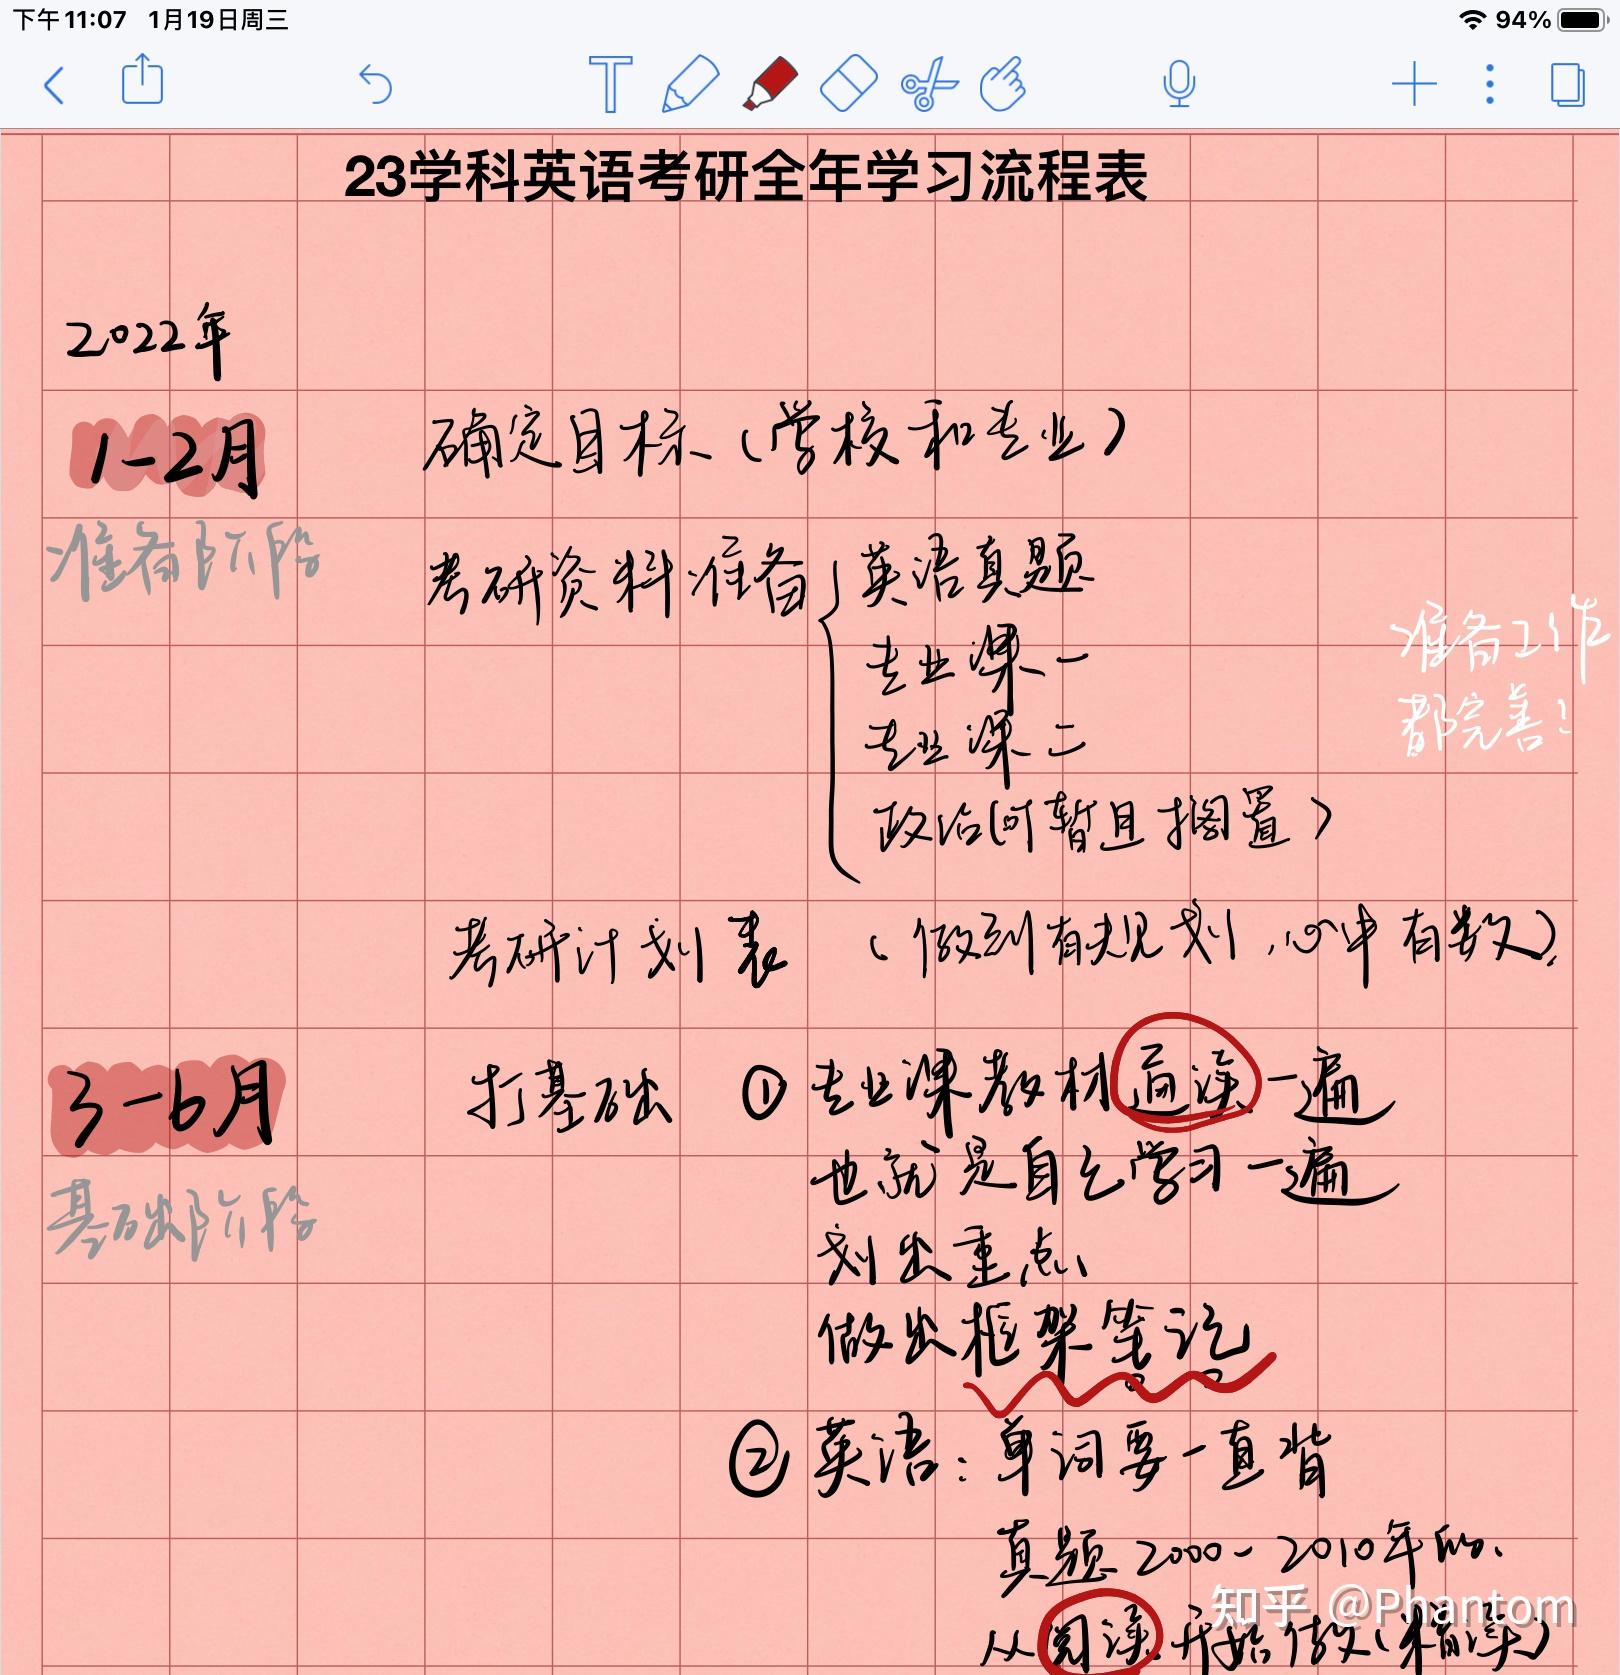 下午11:07 1月19日周三 94%
23学科英语考研全年学习流程表
2022年
1-2月 确定目标（学校和专业）
准备阶段
考研资料准备 { 英语真题
准备工作
专业课一
都完善！
专业课二
政治（可暂且搁置）
考研计划表 （做到有规划，心中有数）.
3-6月 打基础 ① 专业课教材通读一遍
也就是自己学习一遍
基础阶段
划出重点
做出框架笔记
② 英语：单词要一直背
真题2000-2010年的.
知乎 @Phantom
从阅读开始做（精读）